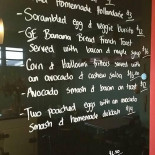 homemade Hollandaise
- Scrambled egg & veggie Burrito
- GF Banana Bread French Toast
served with bacon & maple syrup
- Corn & Halloumi fritters served with
an avocado & cashew salsa
- Avocado smash & bacon on toast
- Two poached eggs with an avocado
smash & homemade dukkah